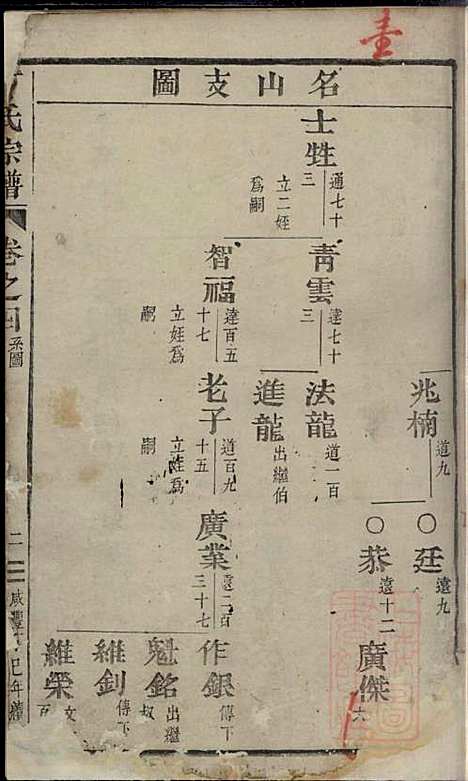 壹
名山支圖
士甡
通七十三
立二姪為嗣
青雲
達七十三
智福
達百五十七
立姪為嗣
兆楠
道九
法龍
道一百
進龍
出繼伯
老子
道百九十五
立姪為嗣
○廷
遠九
○恭
遠十二
廣業
遠二百三十七
廣傑
六
作銀
傳下
魁銘
出繼叔
維釗
傳下
維榮
氏宗譜
卷之四
系圖
二
咸豐
巳年